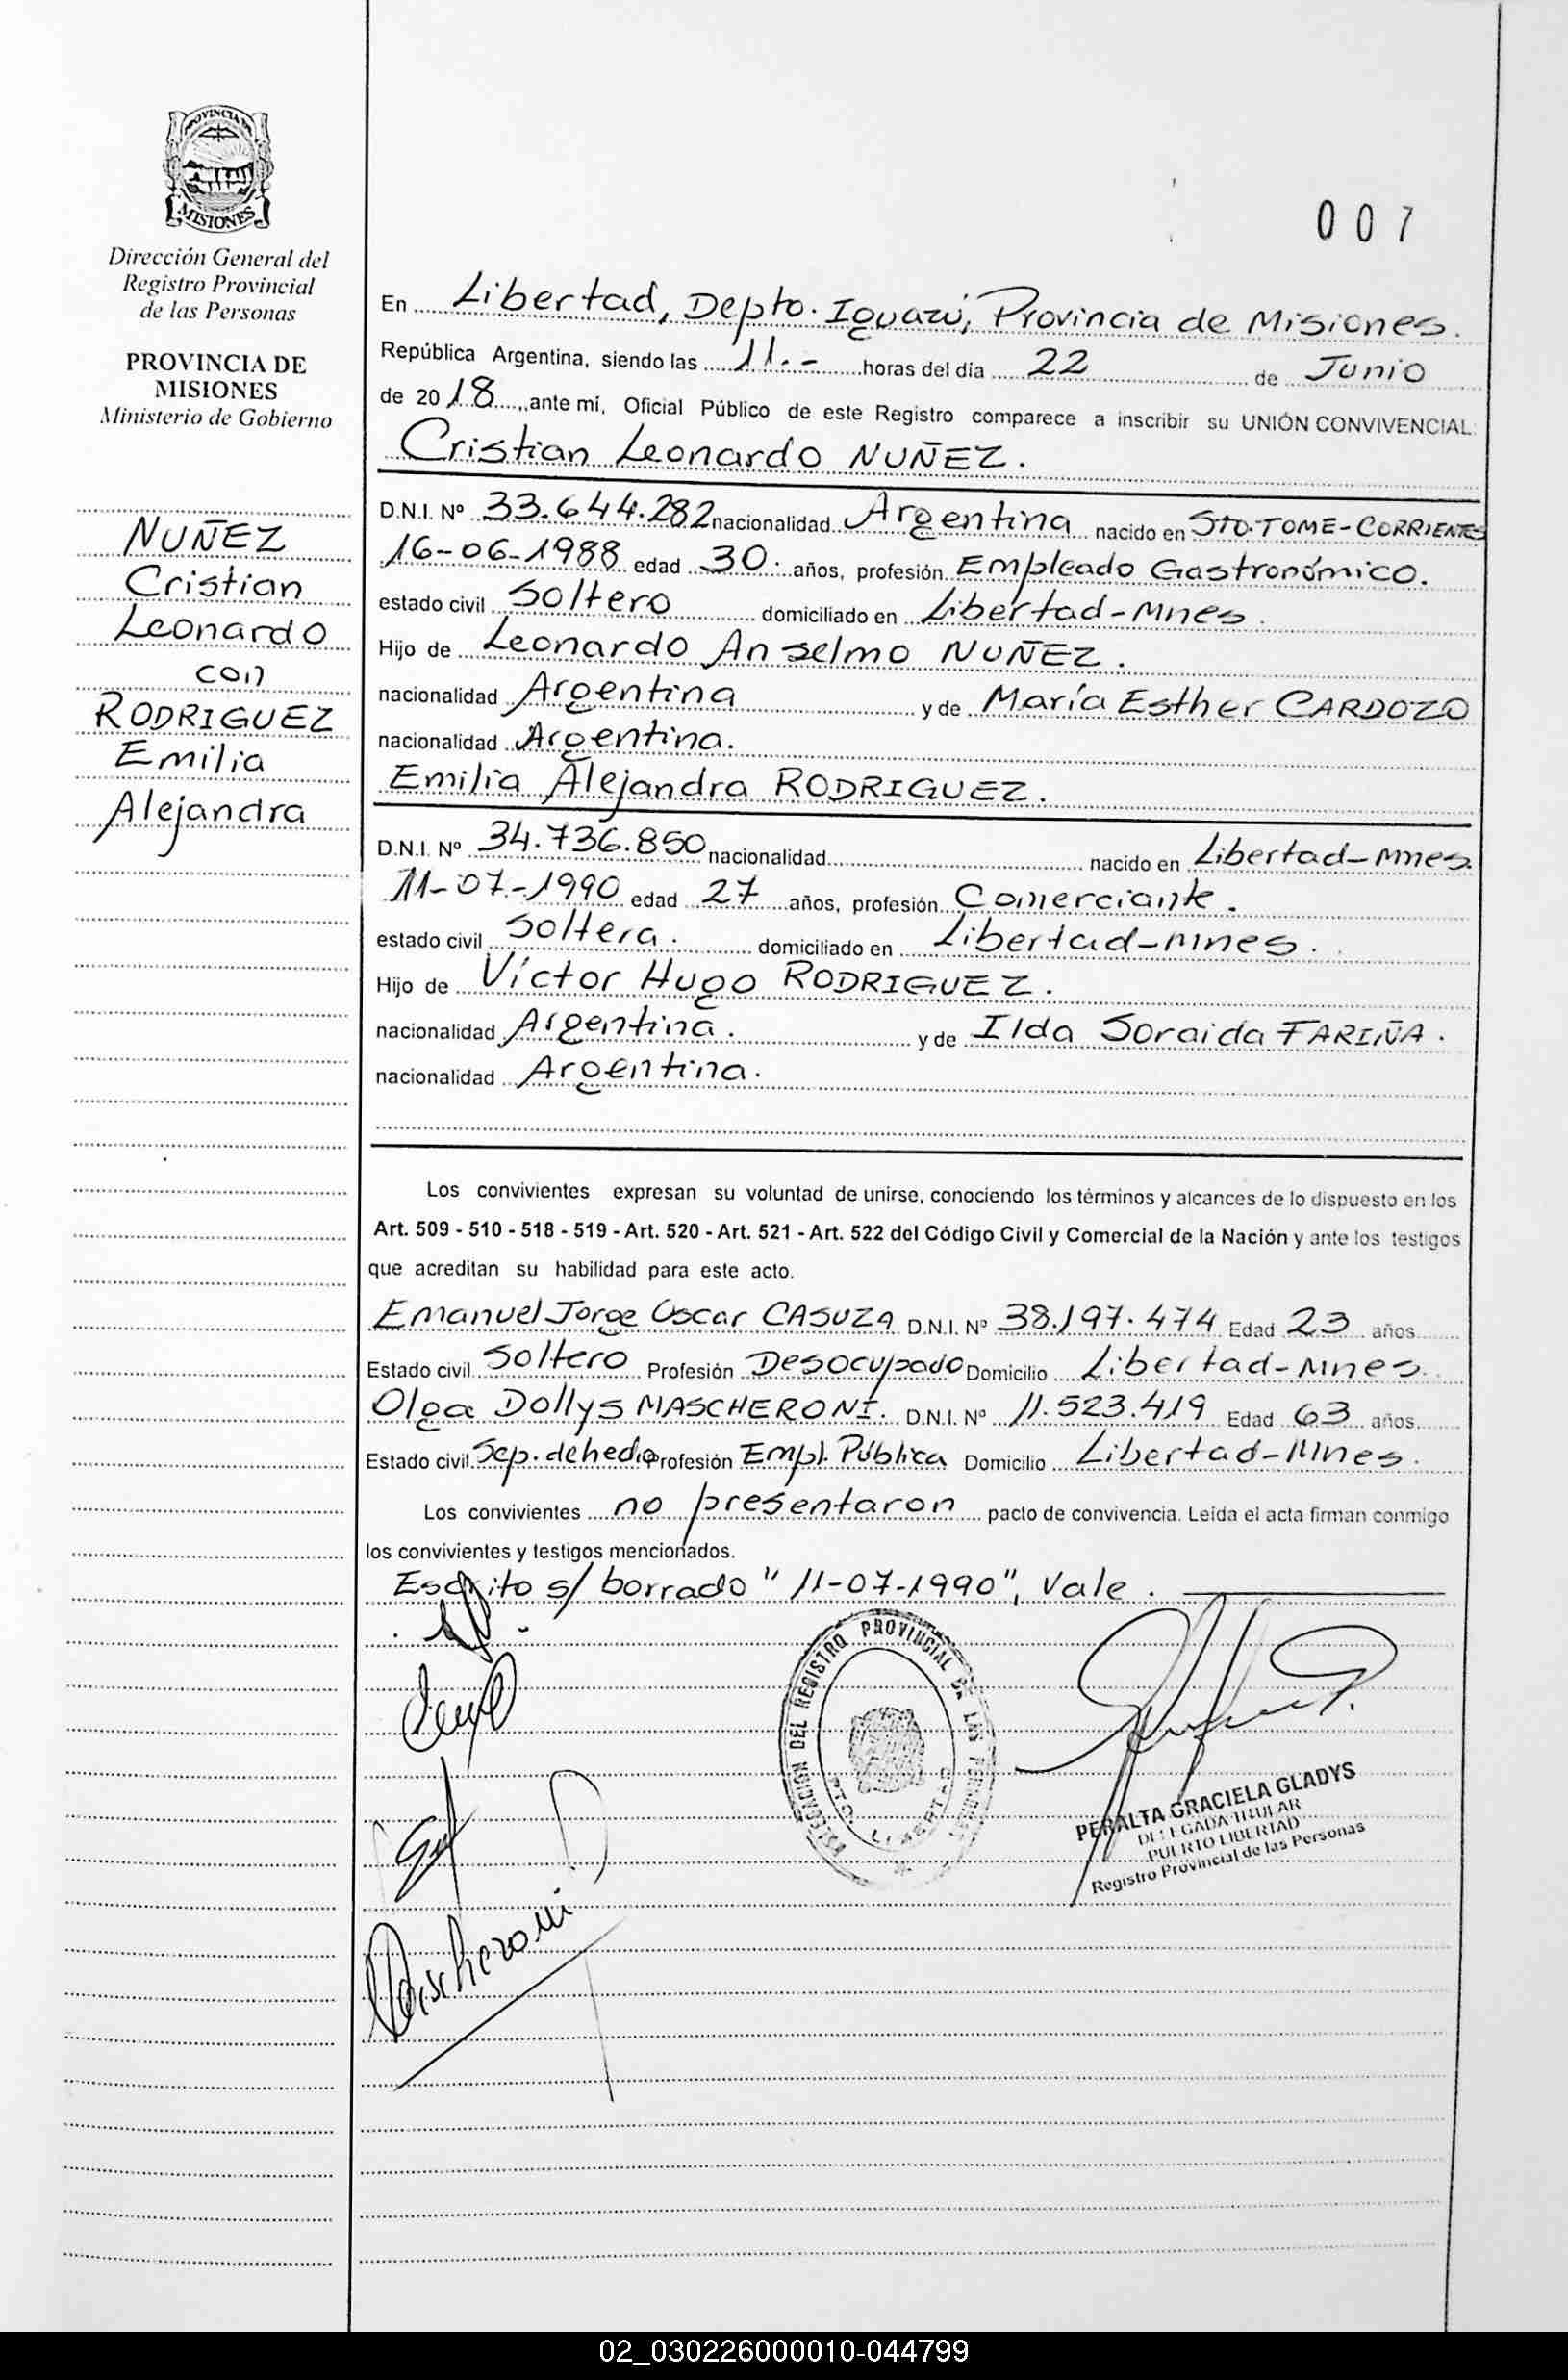 PROVINCIA DE
MISIONES
Dirección General del
Registro Provincial
de las Personas
PROVINCIA DE
MISIONES
Ministerio de Gobierno
NUÑEZ
Cristian
Leonardo
con
RODRIGUEZ
Emilia
Alejandra
007
En Libertad, Depto. Iguazú, Provincia de Misiones.
República Argentina, siendo las 11.- horas del día 22 de Junio
de 2018, ante mí, Oficial Público de este Registro comparece a inscribir su UNIÓN CONVIVENCIAL:
Cristian Leonardo NUÑEZ.
D.N.I. Nº 33.644.282 nacionalidad Argentina nacido en STO. TOME-CORRIENTES
16-06-1988 edad 30. años, profesión Empleado Gastronómico.
estado civil Soltero domiciliado en Libertad-Mnes.
Hijo de Leonardo Anselmo NUÑEZ.
nacionalidad Argentina y de María Esther CARDOZO
nacionalidad Argentina.
Emilia Alejandra RODRIGUEZ.
D.N.I. Nº 34.736.850 nacionalidad nacido en Libertad-Mnes.
11-07-1990 edad 27 años, profesión Comerciante.
estado civil Soltera. domiciliado en Libertad-Mnes.
Hijo de Víctor Hugo RODRIGUEZ.
nacionalidad Argentina. y de Ilda Soraida FARIÑA.
nacionalidad Argentina.
Los convivientes expresan su voluntad de unirse, conociendo los términos y alcances de lo dispuesto en los
Art. 509 - 510 - 518 - 519 - Art. 520 - Art. 521 - Art. 522 del Código Civil y Comercial de la Nación y ante los testigos
que acreditan su habilidad para este acto.
Emanuel Jorge Oscar CASUZA D.N.I. Nº 38.197.474 Edad 23 años
Estado civil Soltero Profesión Desocupado Domicilio Libertad-Mnes.
Olga Dollys MASCHERONI. D.N.I. Nº 11.523.419 Edad 63 años
Estado civil Sep. de hecho Profesión Empl. Pública Domicilio Libertad-Mnes.
Los convivientes no presentaron pacto de convivencia. Leída el acta firman conmigo
los convivientes y testigos mencionados.
Escrito s/ borrado "11-07-1990", Vale.
DELEGACION DEL REGISTRO PROVINCIAL DE LAS PERSONAS
PTO. LIBERTAD
PERALTA GRACIELA GLADYS
DELEGADA TITULAR
PUERTO LIBERTAD
Registro Provincial de las Personas
Mascheroni
02_030226000010-044799